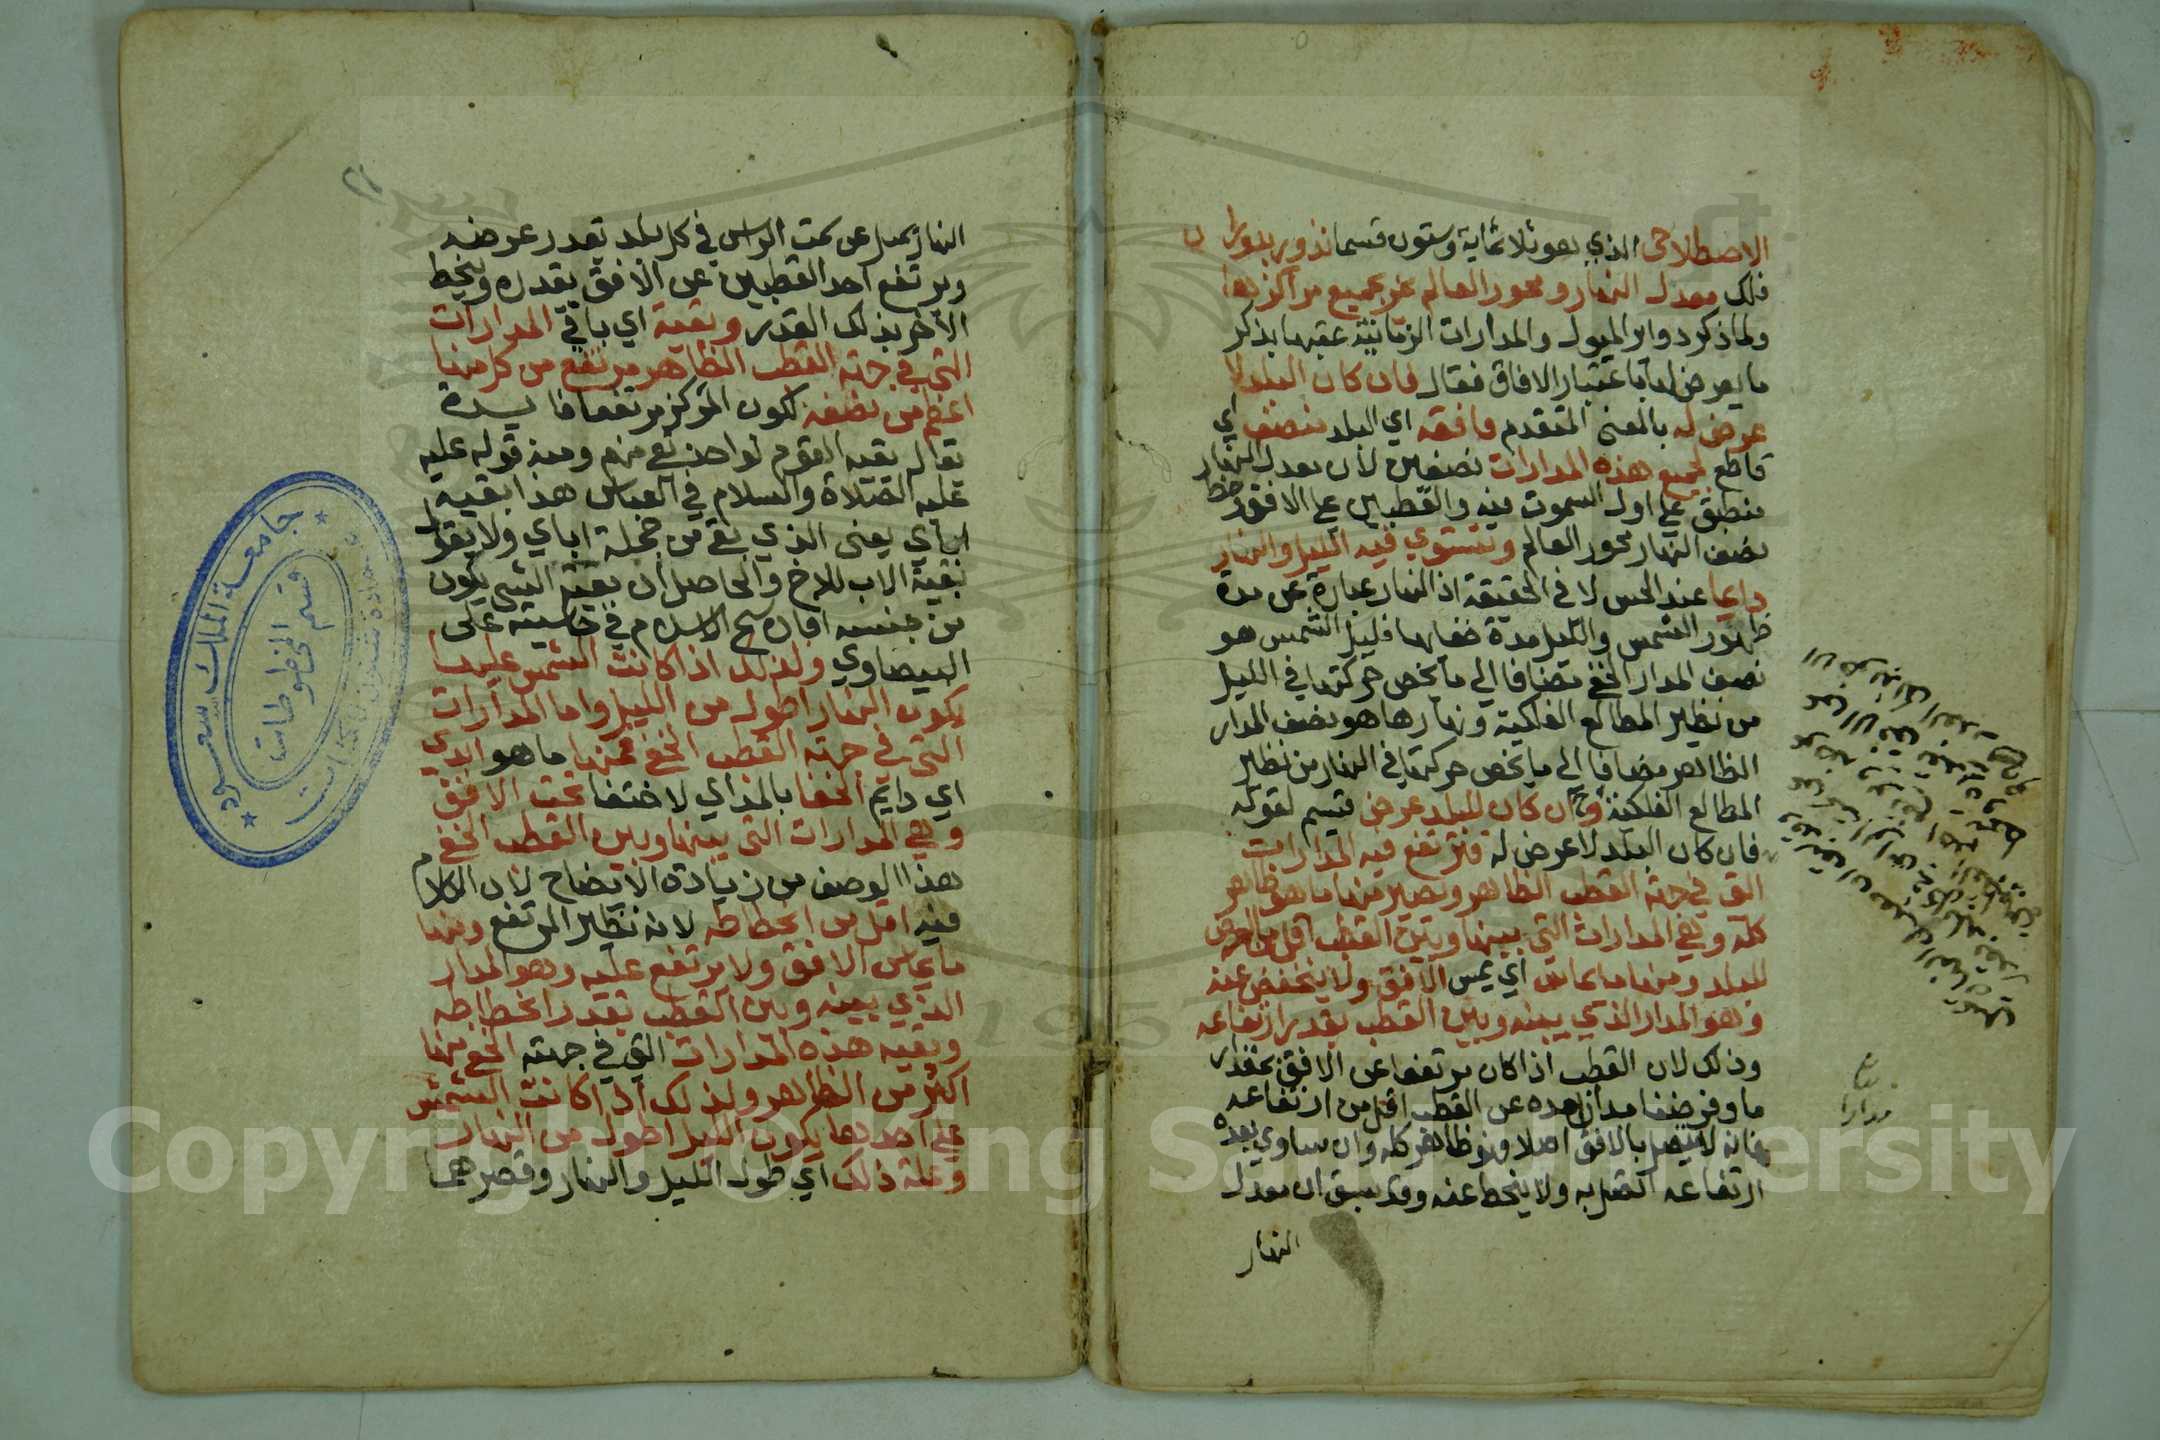 الاصطلاحى الذي هو ثلاثماية وستون قسما تدور بدوران
فلك معدل النهار ومحور العالم يمر بجميع مراكزها
ولما ذكر دواير الميول والمدارات الزمانية عقبها بذكر
ما يعرض لها باعتبار الافاق فقال فان كان البلد لا
عرض له بالمعنى المتقدم فافقه اي البلد منصف اي
قاطع لجميع هذه المدارات نصفين لان معدل النهار
منطبق على اول السموت فيه والقطبين على الافق وخط
نصف النهار محور العالم ويستوي فيه الليل والنهار
دايما عند الحس لا في الحقيقة اذ النهار عبارة عن مدة
ظهور الشمس والليل مدة خفايها فليل الشمس هو
نصف المدار الخفي مضافا الي ما يخص حركتها في الليل
من نظير المطالع الفلكية ونهارها هو نصف المدار
الظاهر مضافا الي ما يخص حركتها في النهار من نظير
المطالع الفلكية وان كان للبلد عرض قسيم لقوله
فان كان البلد لا عرض له فترتفع فيه المدارات
التي في جهة القطب الظاهر ويصير منها ما هو ظاهر
كله وهي المدارات التي بينها وبين القطب اقل من العرض
للبلد ومنها ما يماس اي يمس الافق ولا ينخفض عنه
وهو المدار الذي بينه وبين القطب بقدر ارتفاعه
وذلك لان القطب اذا كان مرتفعا عن الافق بمقدار
ما وفرضنا مدارا بعده عن القطب اقل من ارتفاعه
فانه لا يتصل بالافق اصلا فهو ظاهر كله وان ساوي بعده
ارتفاعه اتصل به ولا ينحط عنه وقد سبق ان معدل
النهار
النهار يميل عن سمت الراس في كل بلد بقدر عرضه
ويرتفع احد القطبين عن الافق بقدره وينحط
الاخر بذلك القدر وبقية اي باقي المدارات
التي في جهة القطب الظاهر يرتفع من كل منها
اعظم من نصفه لكون المركز مرتفعا
يقال بقية القوم لواحد بقي منهم ومنه قوله عليه
عليه الصلاة والسلام في العباس هذا بقية
ابآي يعنى الذي بقي من جملة اباي ولا يقول
بقية الاب للاخ والحاصل ان بقية الشي يكون
من جنسه افاده شيخ الاسلام في حاشيته على
البيضاوي ولذلك اذا كانت الشمس عليها
يكون النهار اطول من الليل واما المدارات
التي في جهة القطب الخفي فمنها ما هو ابدي
اي دايم الخفا بالمد اي لاختفا تحت الافق
وهي المدارات التي بينها وبين القطب الخفي
هذا الوصف من زيادة الايضاح لان الكلام
فيه اقل من انحطاطه لانه نظير المرتفع ومنها
ما يماس الافق ولا يرتفع عليه وهو المدار
الذي بينه وبين القطب بقدر انحطاطه
وبقية هذه المدارات التي في جهته الخفي منها
اكثر من الظاهر ولذلك اذا كانت الشمس
على احدها يكون الليل اطول من النهار
وعلة ذلك اي طول الليل والنهار وقصرهما
جامعة الملك سعود
قسم المخطوطات
1957
Copyright © King Saud University